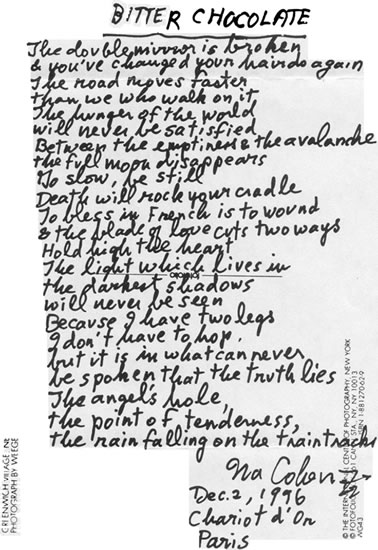 BITTER CHOCOLATE
The double mirror is broken
& you've changed your hairdo again
The road moves faster
than we who walk on it
The hunger of the world
will never be satisfied
Between the emptiness & the avalanche
the full moon disappears
Go slow, be still
Death will rock your cradle
To bless in French is to wound
& the blade of love cuts two ways
Hold high the heart
The light which lives in
the darkest shadows
will never be seen
Because I have two legs
I don't have to hop.
but it is in what can never
be spoken that the truth lies
The angel's hole
the point of tenderness,
the rain falling on the train tracks
Ira Cohen
Dec. 2, 1996
Chariot d'Or
Paris
GREENWICH VILLAGE, NR
PHOTOGRAPH BY WEEGE
© THE INTERNATIONAL CENTER PHOTOGRAPHY, NEW YORK
© FOTOFOLIO, 561 CANAL STA. NY, NY 10013
ISBN 1-881270-62-9
WG43